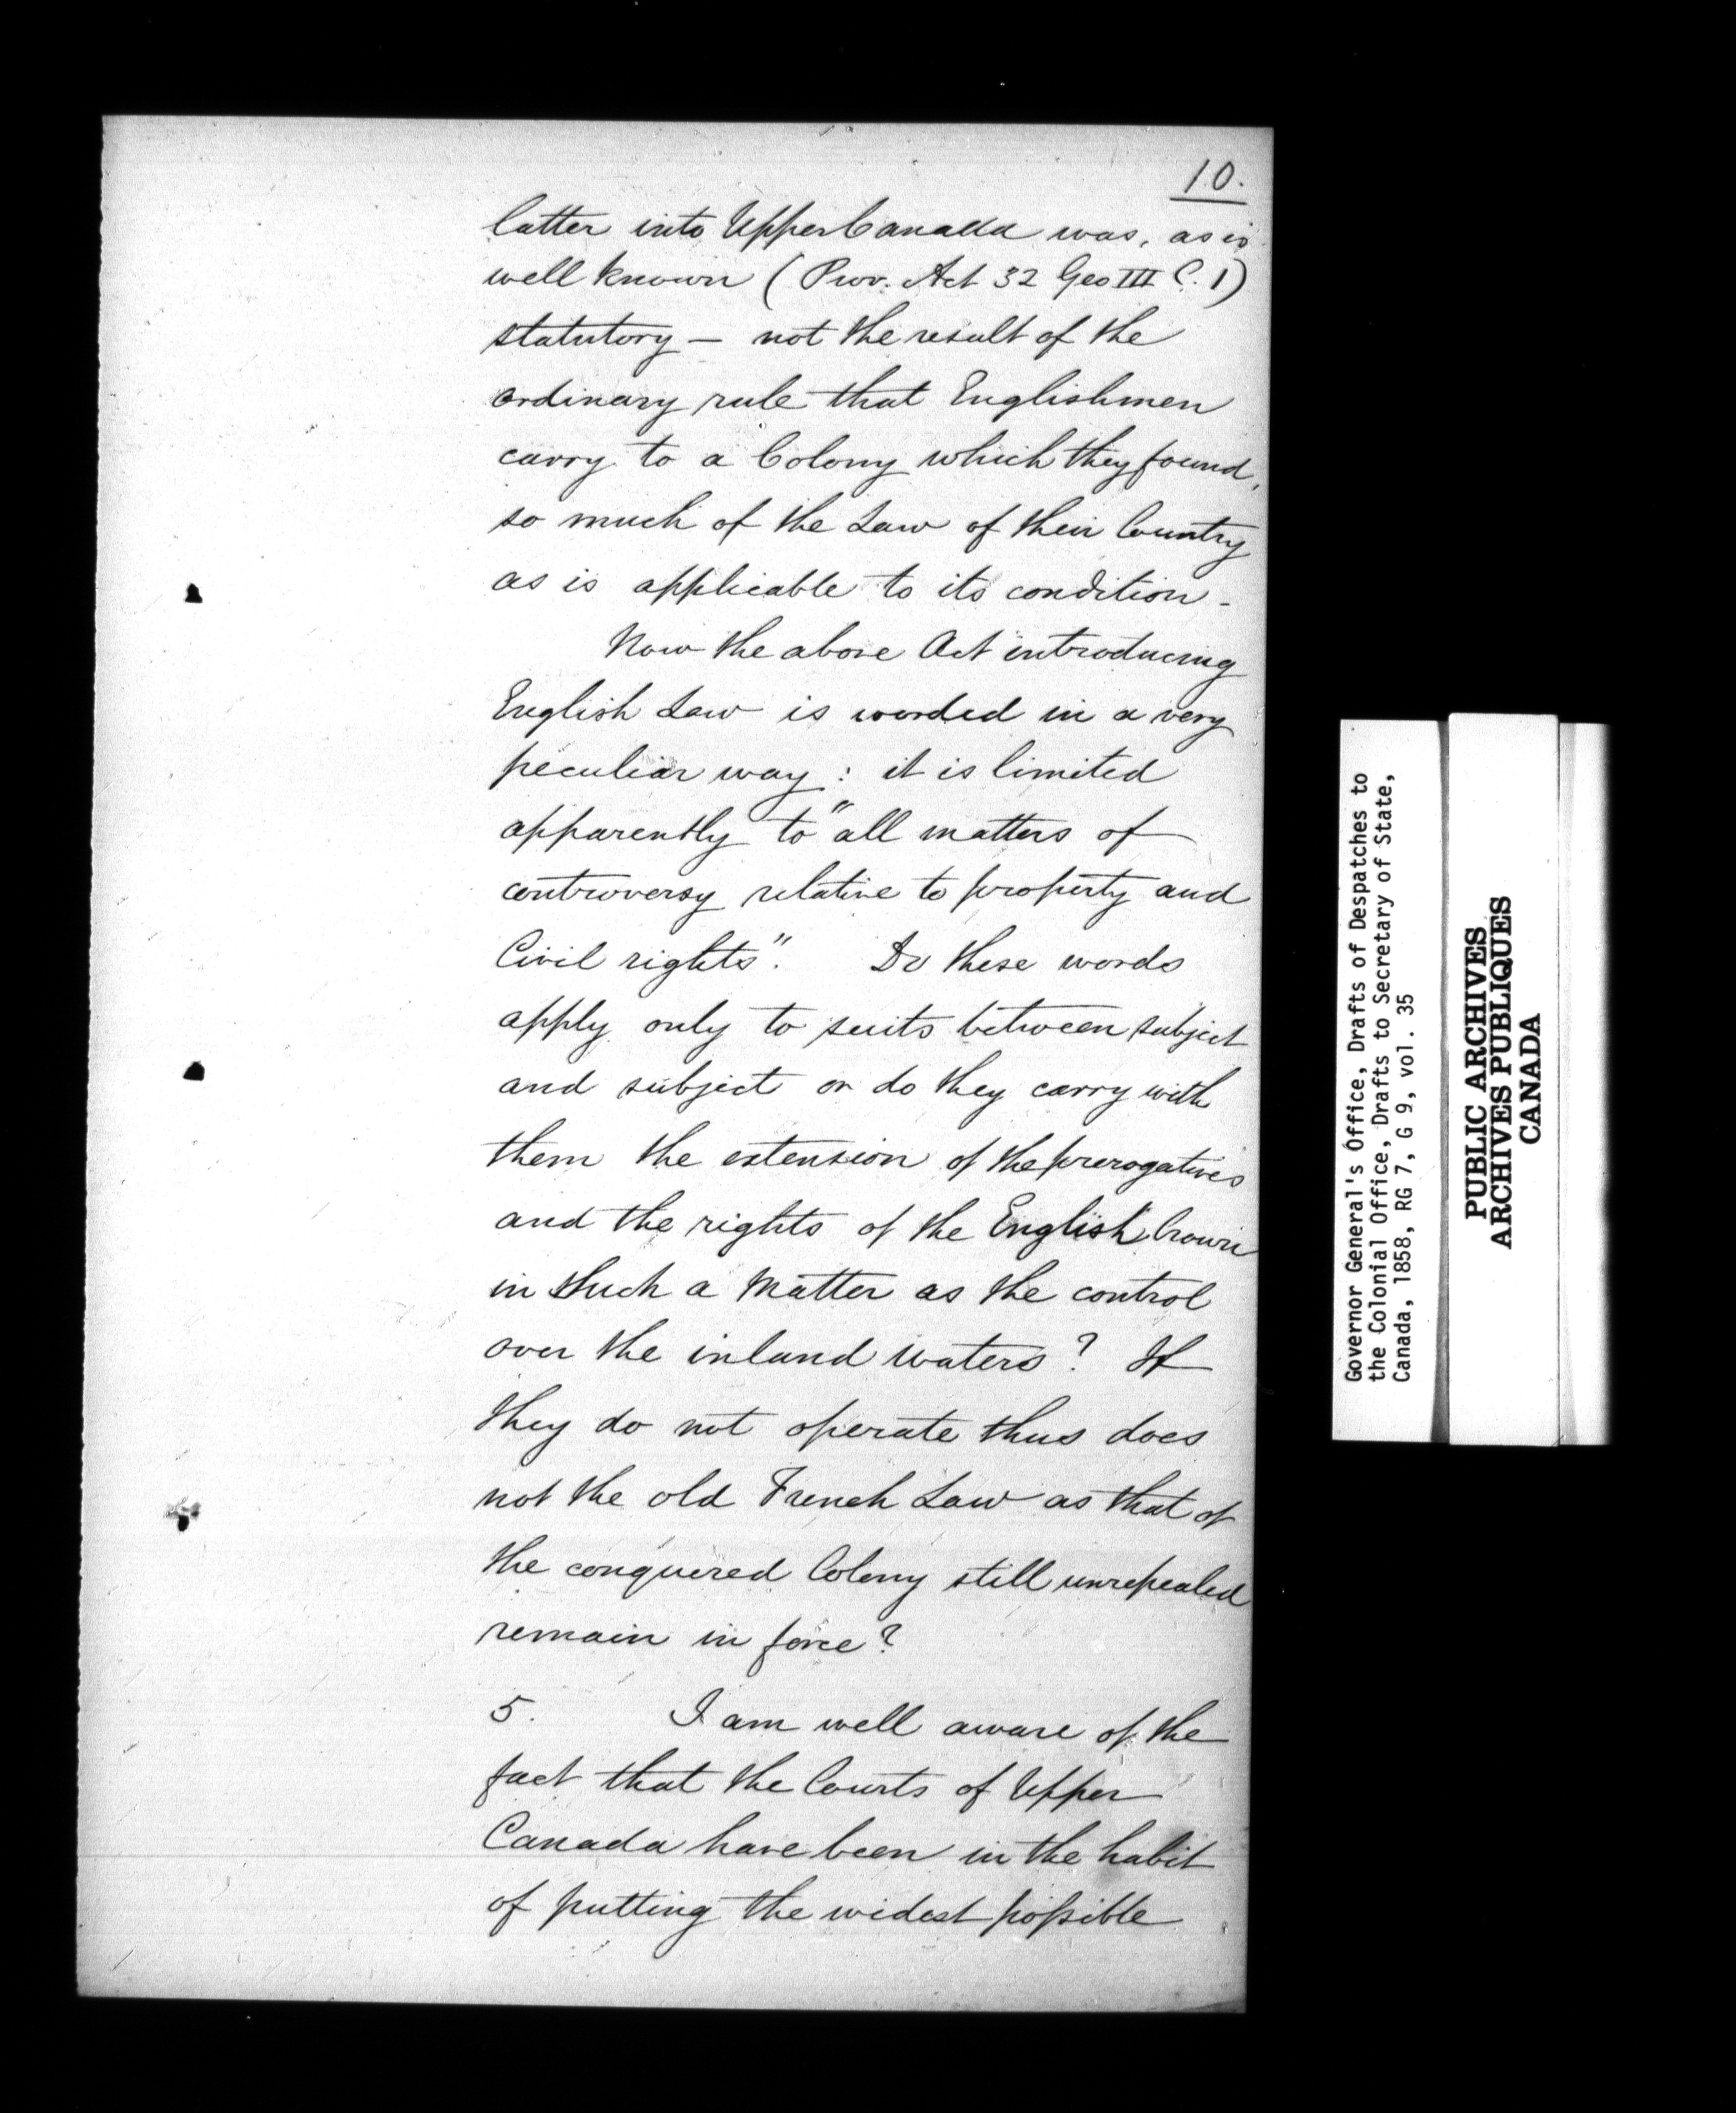 10.
latter into Upper Canada was, as is
well known (Prov. Act 32 Geo III C. 1)
statutory — not the result of the
ordinary rule that Englishmen
carry to a Colony which they found,
so much of the Law of their Country
as is applicable to its condition -
Now the above Act introducing
English Law is worded in a very
peculiar way : it is limited
apparently to "all matters of
controversy relative to property and
Civil rights". Do these words
apply only to suits between subject
and subject or do they carry with
them the extension of the prerogatives
and the rights of the English Crown
in such a matter as the control
over the inland waters? If
they do not operate thus does
not the old French Law as that of
the conquered Colony still unrepealed
remain in force?
5. I am well aware of the
fact that the Courts of Upper
Canada have been in the habit
of putting the widest possible
Governor General's Office, Drafts of Despatches to
the Colonial Office, Drafts to Secretary of State,
Canada, 1858, RG 7, G 9, vol. 35
PUBLIC ARCHIVES
ARCHIVES PUBLIQUES
CANADA